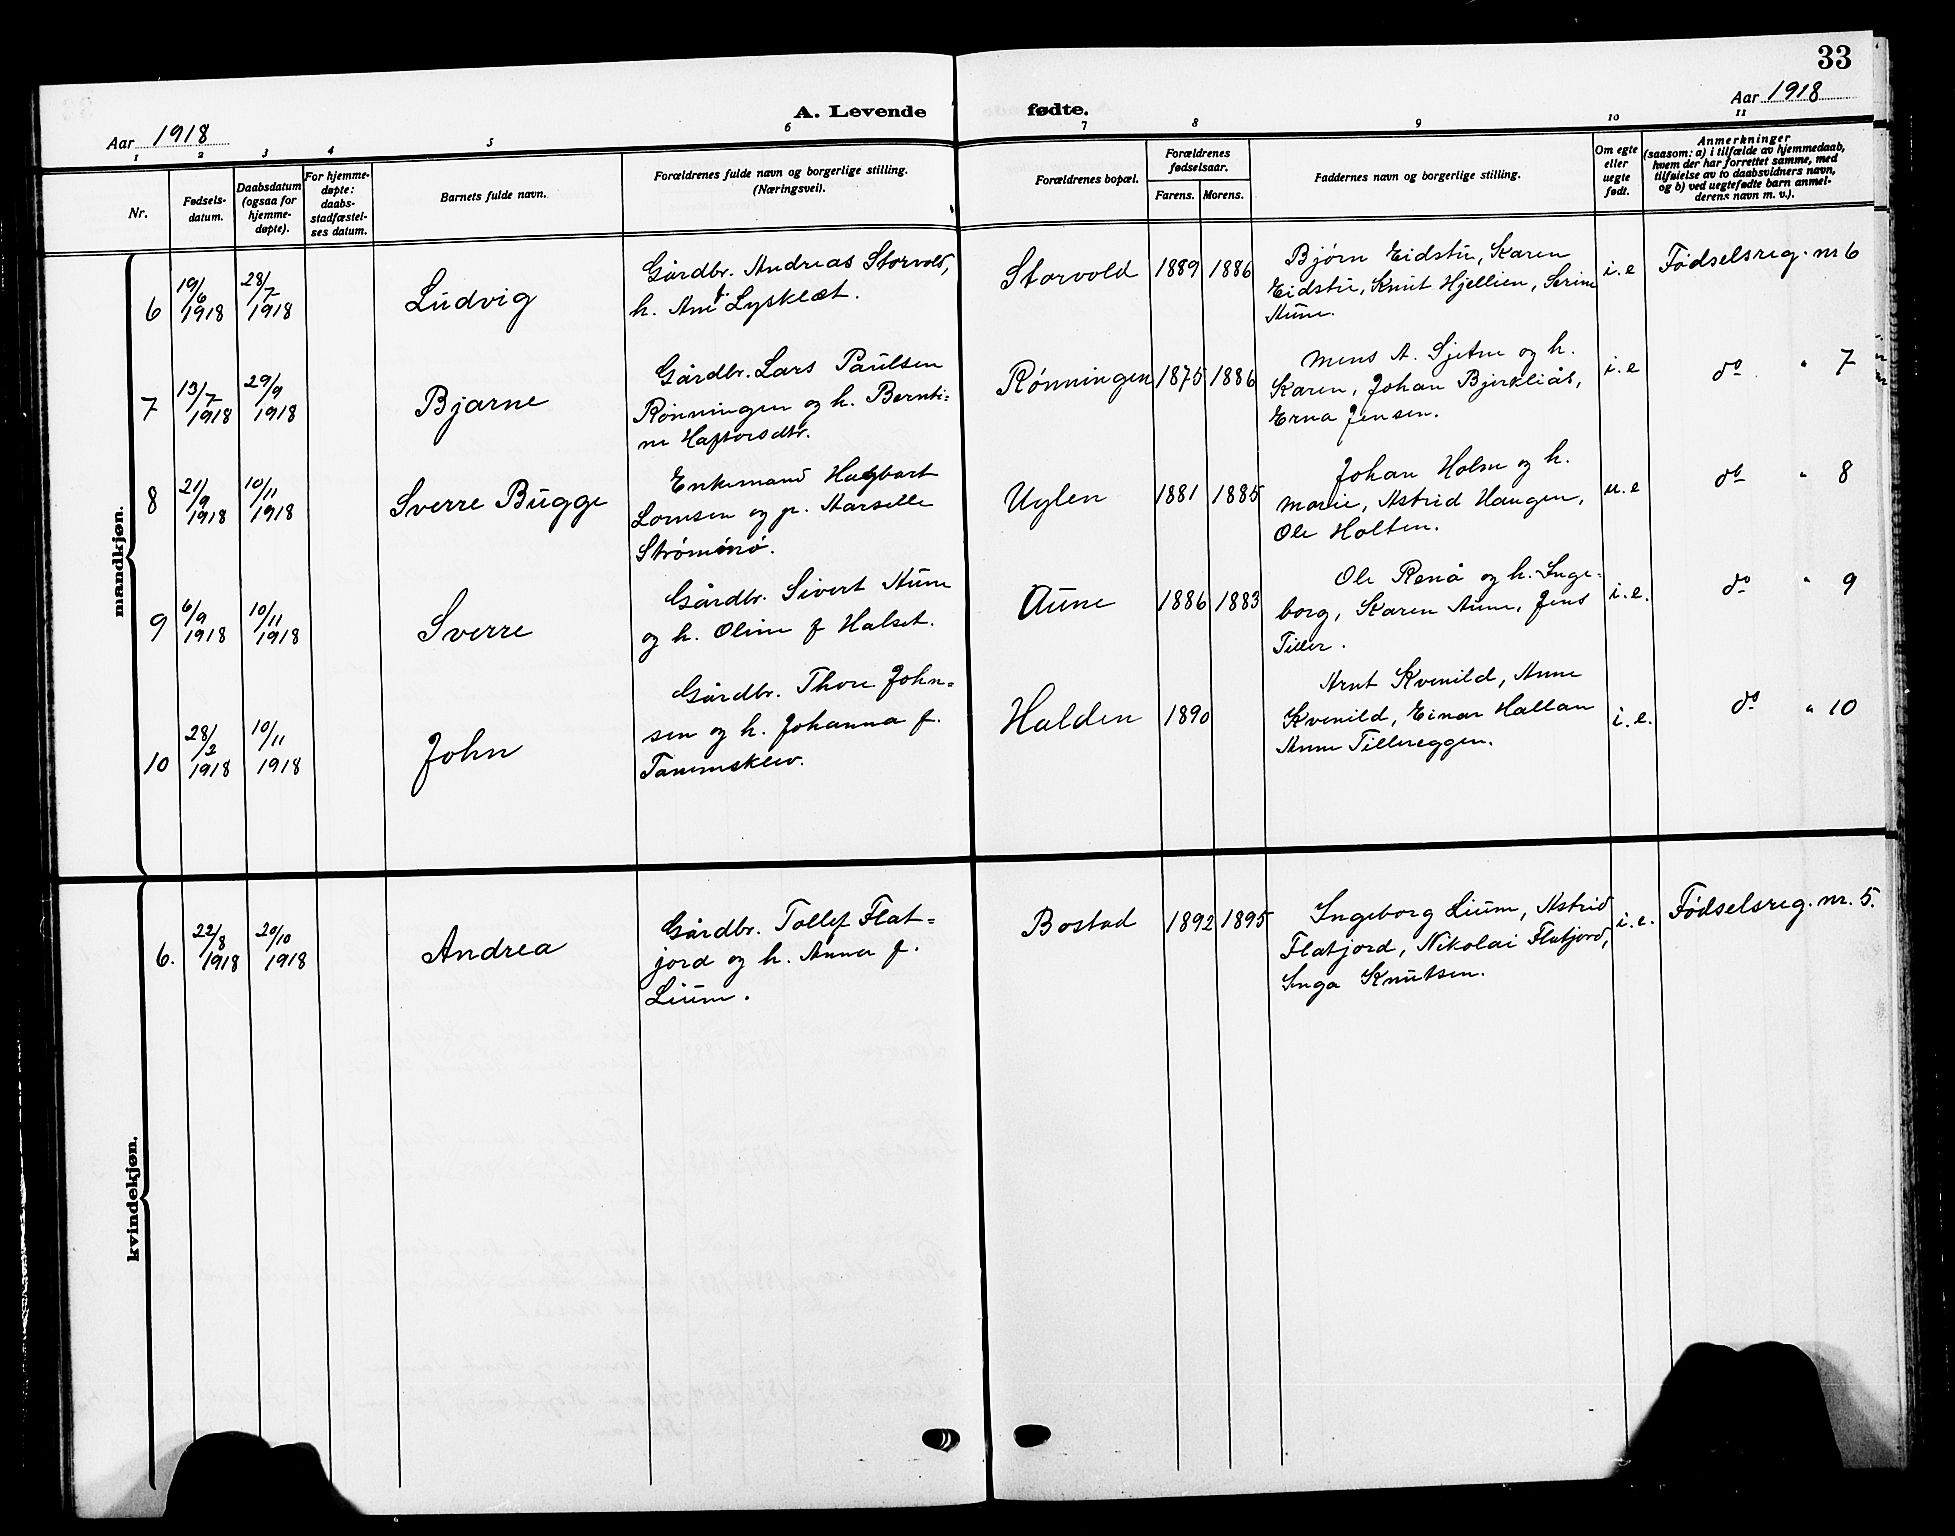 33
A. Levende fødte.
Aar 1918
Aar 1918
1 2 3 4 5 6 7 8 9 10 11
Nr.
Fødsels-
datum.
Daabsdatum
(ogsaa for
hjemme-
døpte).
For hjemme-
døpte:
daabs-
stadfæstel-
ses datum.
Barnets fulde navn.
Forældrenes fulde navn og borgerlige stilling.
(Næringsvei).
Forældrenes bopæl.
Forældrenes
fødselsaar.
Farens. Morens.
Faddernes navn og borgerlige stilling.
Om egte
eller
uegte
født.
Anmerkninger
(saasom: a) i tilfælde av hjemmedaab,
hvem der har forrettet samme, med
tilføielse av to daabsvidners navn,
og b) ved uegtefødte barn anmel-
derens navn m. v.).
mandkjøn.
6
19/6
1918
28/7
1918
Ludvig
Gårdbr. Andreas Storvold,
h. Ane f Lysklæt.
Storvold
1889 1886
Bjørn Eidstu, Karen
Eidstu, Knut Hjellien, Serine
Aune.
i. e
Fødselsreg. nr 6
7
13/7
1918
29/9
1918
Bjarne
Gårdbr. Lars Paulsen
Rønningen og h. Bernti-
ne Haftorsdtr.
Rønningen
1875 1886
Mens A. Sjetne og h.
Karen, Johan Bjerkliås,
Erna Jensen.
i. e
do " 7
8
21/9
1918
10/11
1918
Sverre Bugge
Enkemand Hagbart
Lornsen og p. Aarselle
Strømsnø.
Uglen
1881 1885
Johan Holm og h.
Marie, Astrid Haugen,
Ole Holten.
u. e
do " 8
9
6/9
1918
10/11
1918
Sverre
Gårdbr. Sivert Aune
og h. Oline f Halset.
Aune
1886 1883
Ole Renå og h. Inge-
borg, Karen Aune, Jens
Tiller.
i. e.
do " 9
10
28/2
1918
10/11
1918
John
Gårdbr. Thore John-
sen og h. Johanna f.
Tanemsklev.
Halden
1890
Arnt Kvenild, Anne
Kvenild, Einar Hallan
Anne Tillereggen.
i. e.
do " 10
kvindekjøn.
6.
22/8
1918
20/10
1918
Andrea
Gårdbr. Tollef Flat-
jord og h. Anna f.
Lium.
Bostad
1892 1895
Ingeborg Lium, Astrid
Flatjord, Nikolai Flatjord,
Inga Knutsen.
i. e.
Fødselsreg. nr. 5.